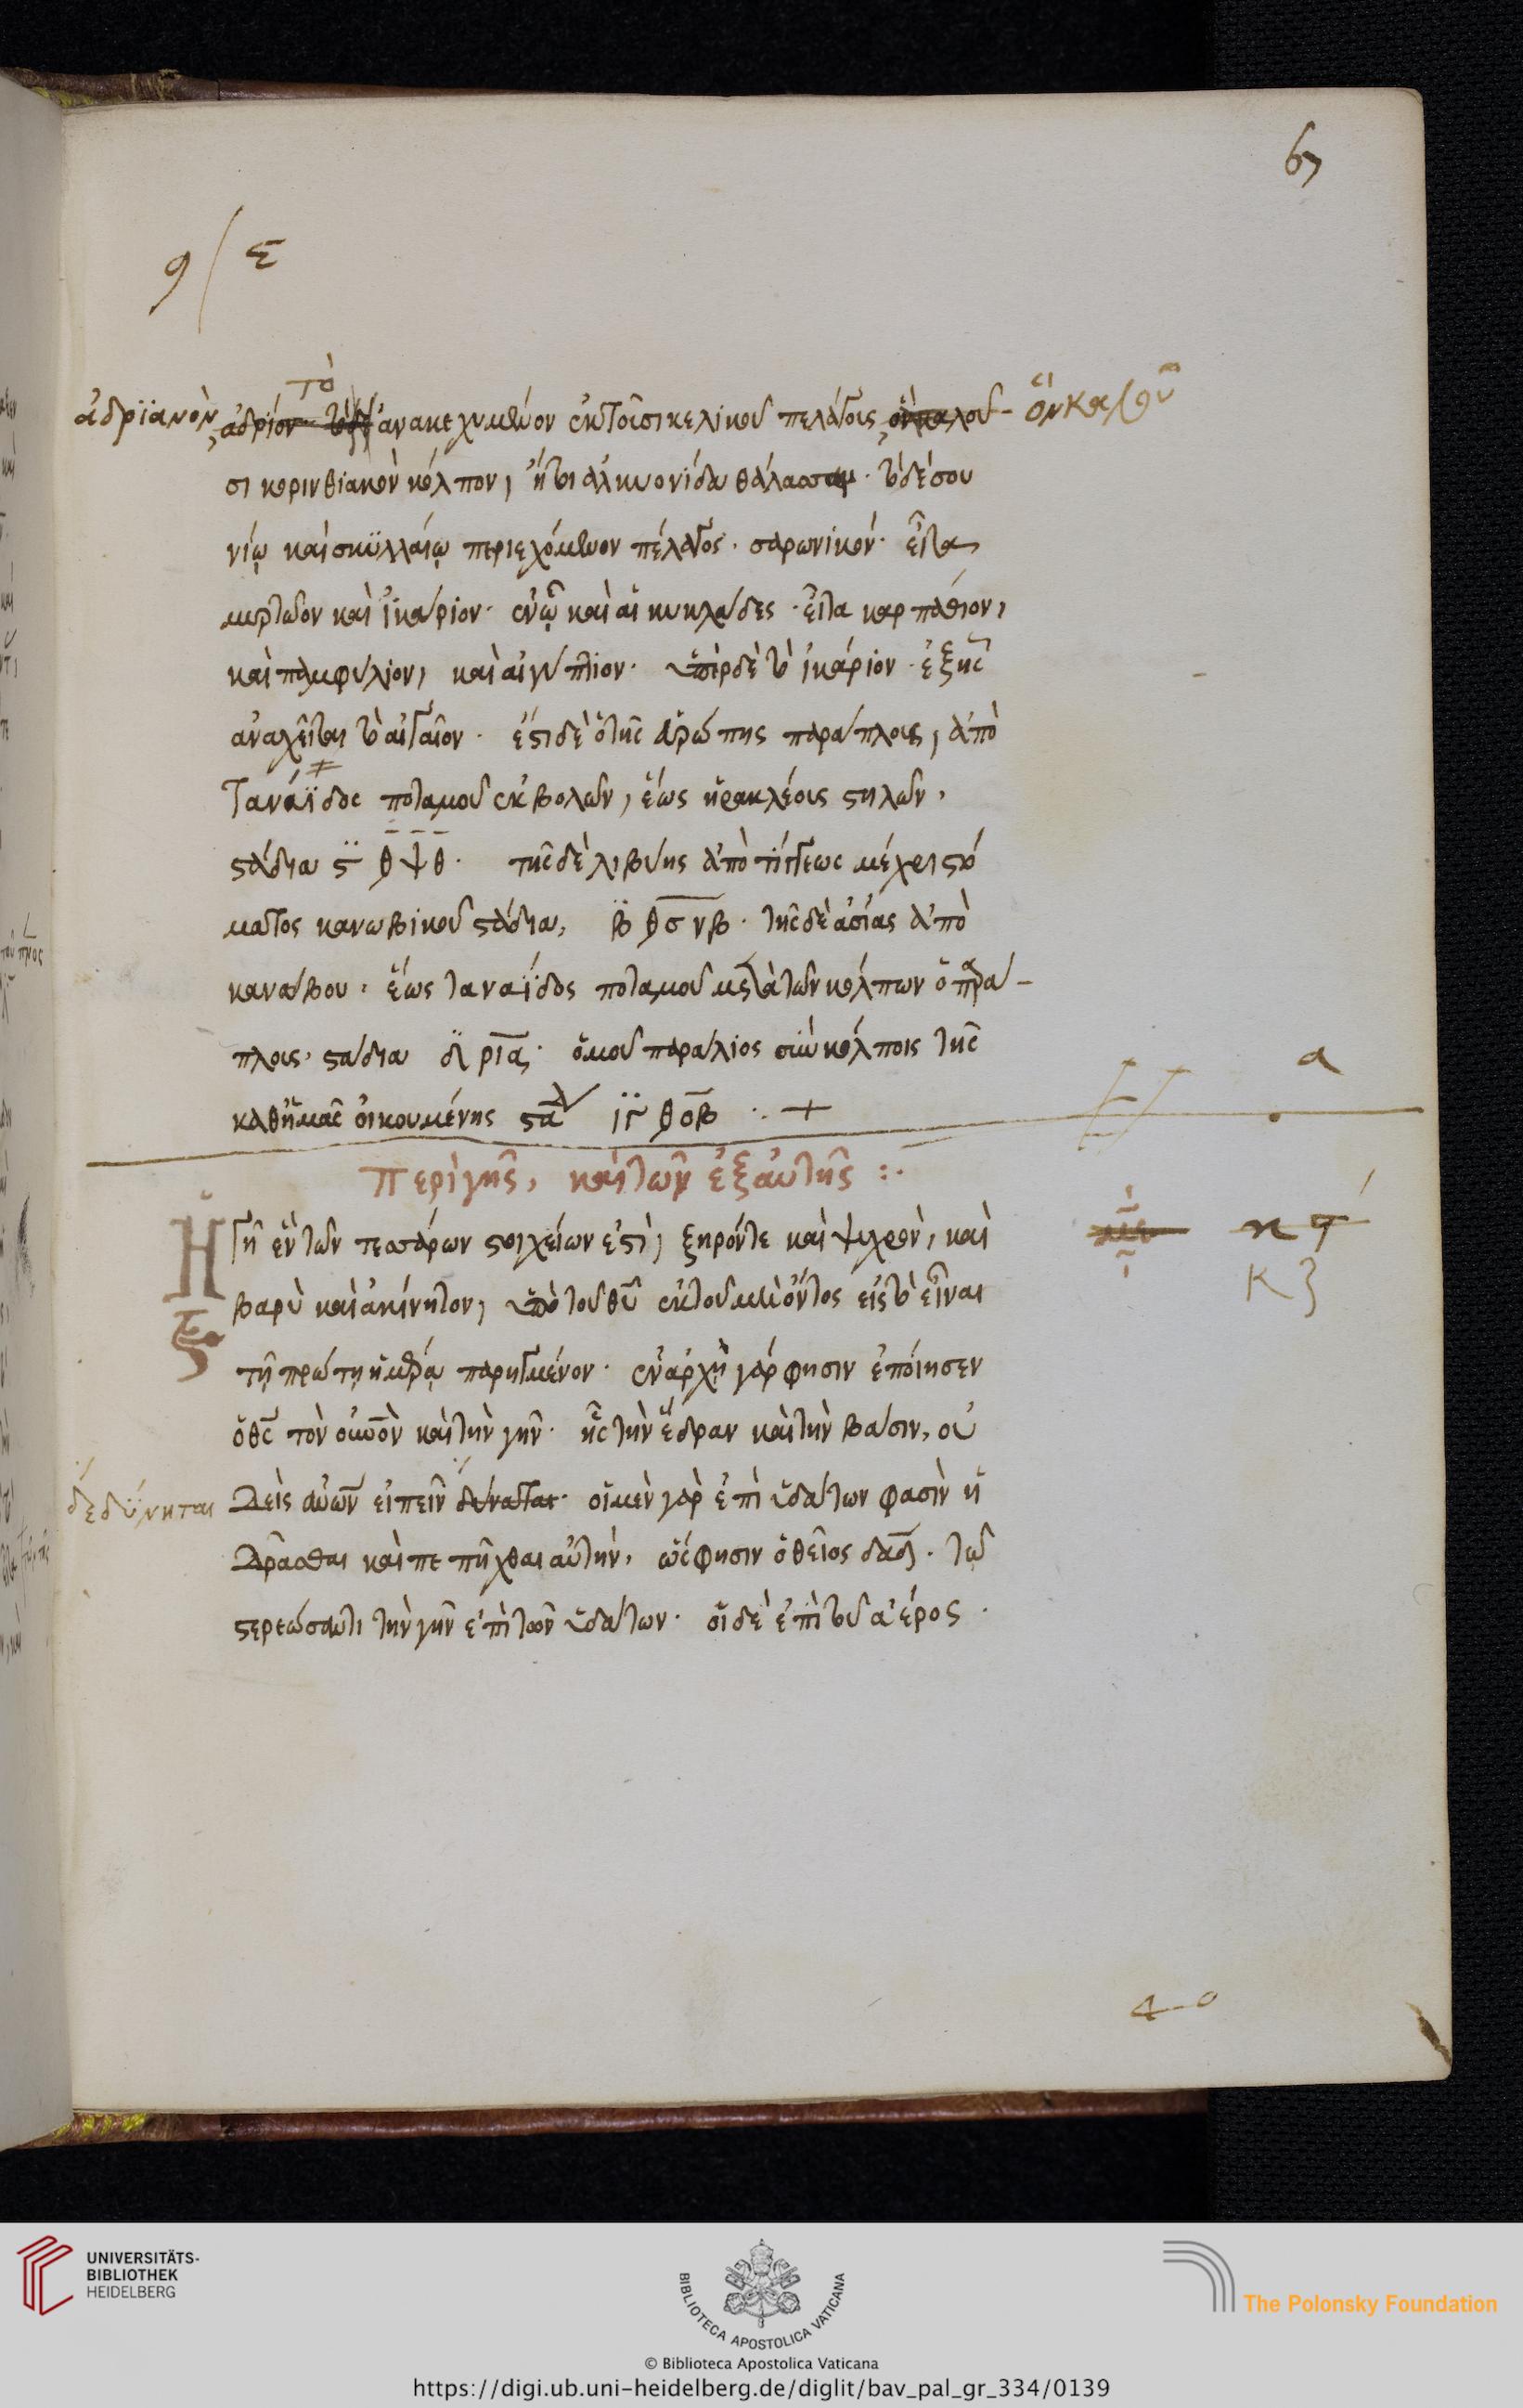 67
9 / Σ
ἀδριανὸν, ἀδρίον τὸ ἀνακεχυμένον ἐκ τοῦ σικελικοῦ πελάγους, ὃν καλοῦ- ὃν καλοῦ
σι κορινθιακὸν κόλπον, ἤτοι ἀλκυονίδα θάλασσαν. τὸ δὲ σου
νίῳ καὶ σκυλλαίῳ περιεχόμενον πέλαγος. σαρωνικόν. εἶτα
μυρτῶον καὶ ἰκάριον. ἐν ᾧ καὶ αἱ κυκλάδες. εἶτα καρπάθιον,
καὶ παμφύλιον, καὶ αἰγύπτιον. ὑπὲρ δὲ τὸ ἰκάριον. ἑξῆς
ἀναχεῖται τὸ αἰγαῖον. ἔστι δὲ ὁ τῆς εὐρώπης παράπλους, ἀπὸ
Τανάϊδος ποταμοῦ ἐκβολῶν, ἕως ἡρακλέους στηλῶν,
στάδια ϛ̈ θψθ. τῆς δὲ λιβύης ἀπὸ τίγγεως μέχρι στό
ματος κανωβικοῦ στάδια, β̈ θσνβ. τῆς δὲ ἀσίας ἀπὸ
κανώβου. ἕως τανάϊδος ποταμοῦ μετὰ τῶν κόλπων ὁ παρά-
πλους. στάδια δ̈ ρια. ὁμοῦ παράλιος σὺν κόλποις τῆς
καθ' ἡμᾶς οἰκουμένης στάδ ιγ̈ θοβ .. +
α
περὶ γῆς, καὶ τῶν ἐξ αὐτῆς :.
Ἡ γῆ ἓν τῶν τεσσάρων στοιχείων ἐστὶ, ξηρόν τε καὶ ψυχρὸν, καὶ
βαρὺ καὶ ἀκίνητον, ὑπὸ τοῦ θυ ἐκ τοῦ μὴ ὄντος εἰς τὸ εἶναι
τῇ πρώτῃ ἡμέρᾳ παρηγμένον. ἐν ἀρχῇ γάρ φησιν ἐποίησεν
ὁ θς τὸν οὐνον καὶ τὴν γῆν. ἧς τὴν ἕδραν καὶ τὴν βάσιν, οὐ
δεδύνηται δεὶς ἀνων εἰπεῖν δύναται. οἱ μὲν γὰρ ἐπὶ ὑδάτων φασὶν ἡ
δρᾶσθαι καὶ πεπῆχθαι αὐτὴν, ὥς φησιν ὁ θεῖος δαδ. τῷ
στερεώσαντι τὴν γῆν ἐπὶ τῶν ὑδάτων. οἱ δὲ ἐπὶ τοῦ ἀέρος.
UNIVERSITÄTS-
BIBLIOTHEK
HEIDELBERG
BIBLIOTECA APOSTOLICA VATICANA
The Polonsky Foundation
© Biblioteca Apostolica Vaticana
https://digi.ub.uni-heidelberg.de/diglit/bav_pal_gr_334/0139